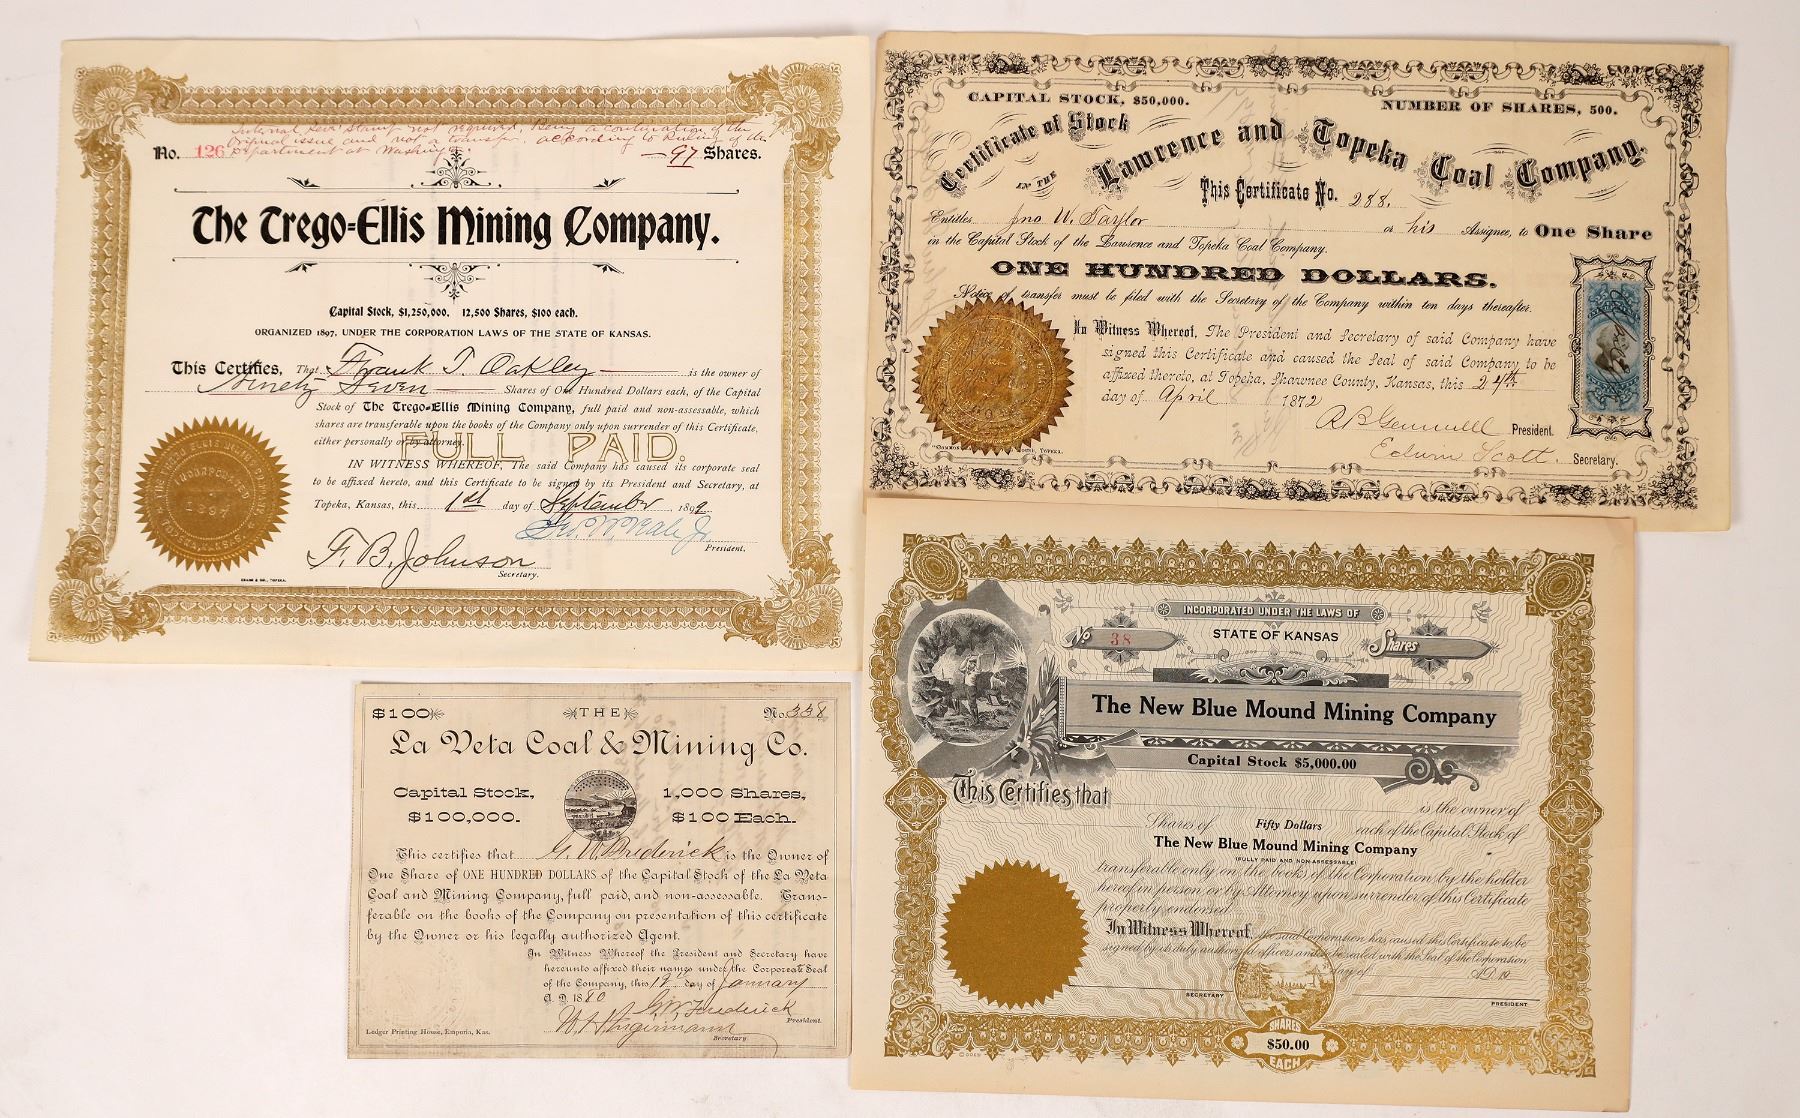 Internal Rev. Stamp not required, Being a continuation of the
original issue and not a transfer, according to Ruling of the
Department at Washing
No. 126
97 Shares.
The Trego-Ellis Mining Company.
Capital Stock, $1,250,000. 12,500 Shares, $100 each.
ORGANIZED 1897, UNDER THE CORPORATION LAWS OF THE STATE OF KANSAS.
This Certifies, That Frank T. Oakley is the owner of
Ninety Seven Shares of One Hundred Dollars each, of the Capital
Stock of The Trego-Ellis Mining Company, full paid and non-assessable, which
shares are transferable upon the books of the Company only upon surrender of this Certificate,
either personally or by attorney.
FULL PAID.
IN WITNESS WHEREOF, The said Company has caused its corporate seal
to be affixed hereto, and this Certificate to be signed by its President and Secretary, at
Topeka, Kansas, this 1st day of September 1899
President.
F. B. Johnson
Secretary.
CRANE & CO., TOPEKA.
THE TREGO ELLIS MINING COMPANY
INCORPORATED
1897
TOPEKA, KANSAS
CAPITAL STOCK, $50,000.
NUMBER OF SHARES, 500.
Certificate of Stock
IN THE
Lawrence and Topeka Coal Company.
This Certificate No. 288.
Entitles Jno W. Taylor or his Assignee, to One Share
in the Capital Stock of the Lawrence and Topeka Coal Company.
ONE HUNDRED DOLLARS.
Notice of transfer must be filed with the Secretary of the Company within ten days thereafter.
In Witness Whereof, The President and Secretary of said Company have
signed this Certificate and caused the Seal of said Company to be
affixed thereto, at Topeka, Shawnee County, Kansas, this 24th
day of April 1872
President.
Edwin Scott. Secretary.
$100
THE
No. 338
La Veta Coal & Mining Co.
Capital Stock,
$100,000.
1,000 Shares,
$100 Each.
This certifies that G. W. Frederick is the Owner of
One Share of ONE HUNDRED DOLLARS of the Capital Stock of the La Veta
Coal and Mining Company, full paid, and non-assessable. Trans-
ferable on the books of the Company on presentation of this certificate
by the Owner or his legally authorized Agent.
In Witness Whereof the President and Secretary have
hereunto affixed their names under the Corporate Seal
of the Company, this 12th day of January
A. D. 1880
G. W. Frederick
President.
Secretary
Ledger Printing House, Emporia, Kas.
INCORPORATED UNDER THE LAWS OF
STATE OF KANSAS
No 38
Shares
The New Blue Mound Mining Company
Capital Stock $5,000.00
This Certifies that is the owner of
Shares of Fifty Dollars each of the Capital Stock of
The New Blue Mound Mining Company
(FULLY PAID AND NON-ASSESSABLE)
transferable only on the books of the Corporation by the holder
hereof in person or by Attorney upon surrender of this Certificate
properly endorsed.
In Witness Whereof, the said Corporation has caused this Certificate to be
signed by its duly authorized officers and to be sealed with the Seal of the Corporation
day of A.D. 19
SECRETARY
PRESIDENT
SHARES
$50.00
EACH
© GOES